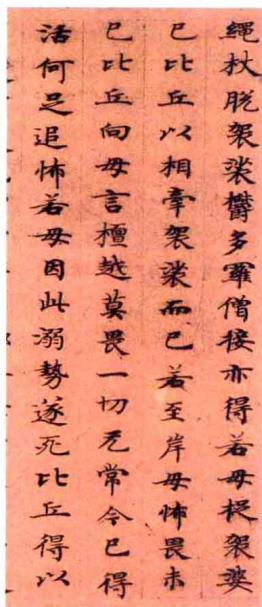 繩杖脫袈裟欝多羅僧接亦得若母捉袈裟
已比丘以相牽袈裟而已若至岸母怖畏未
已比丘向母言檀越莫畏一切无常今已得
活何足追怖若母因此溺勢遂死比丘得以